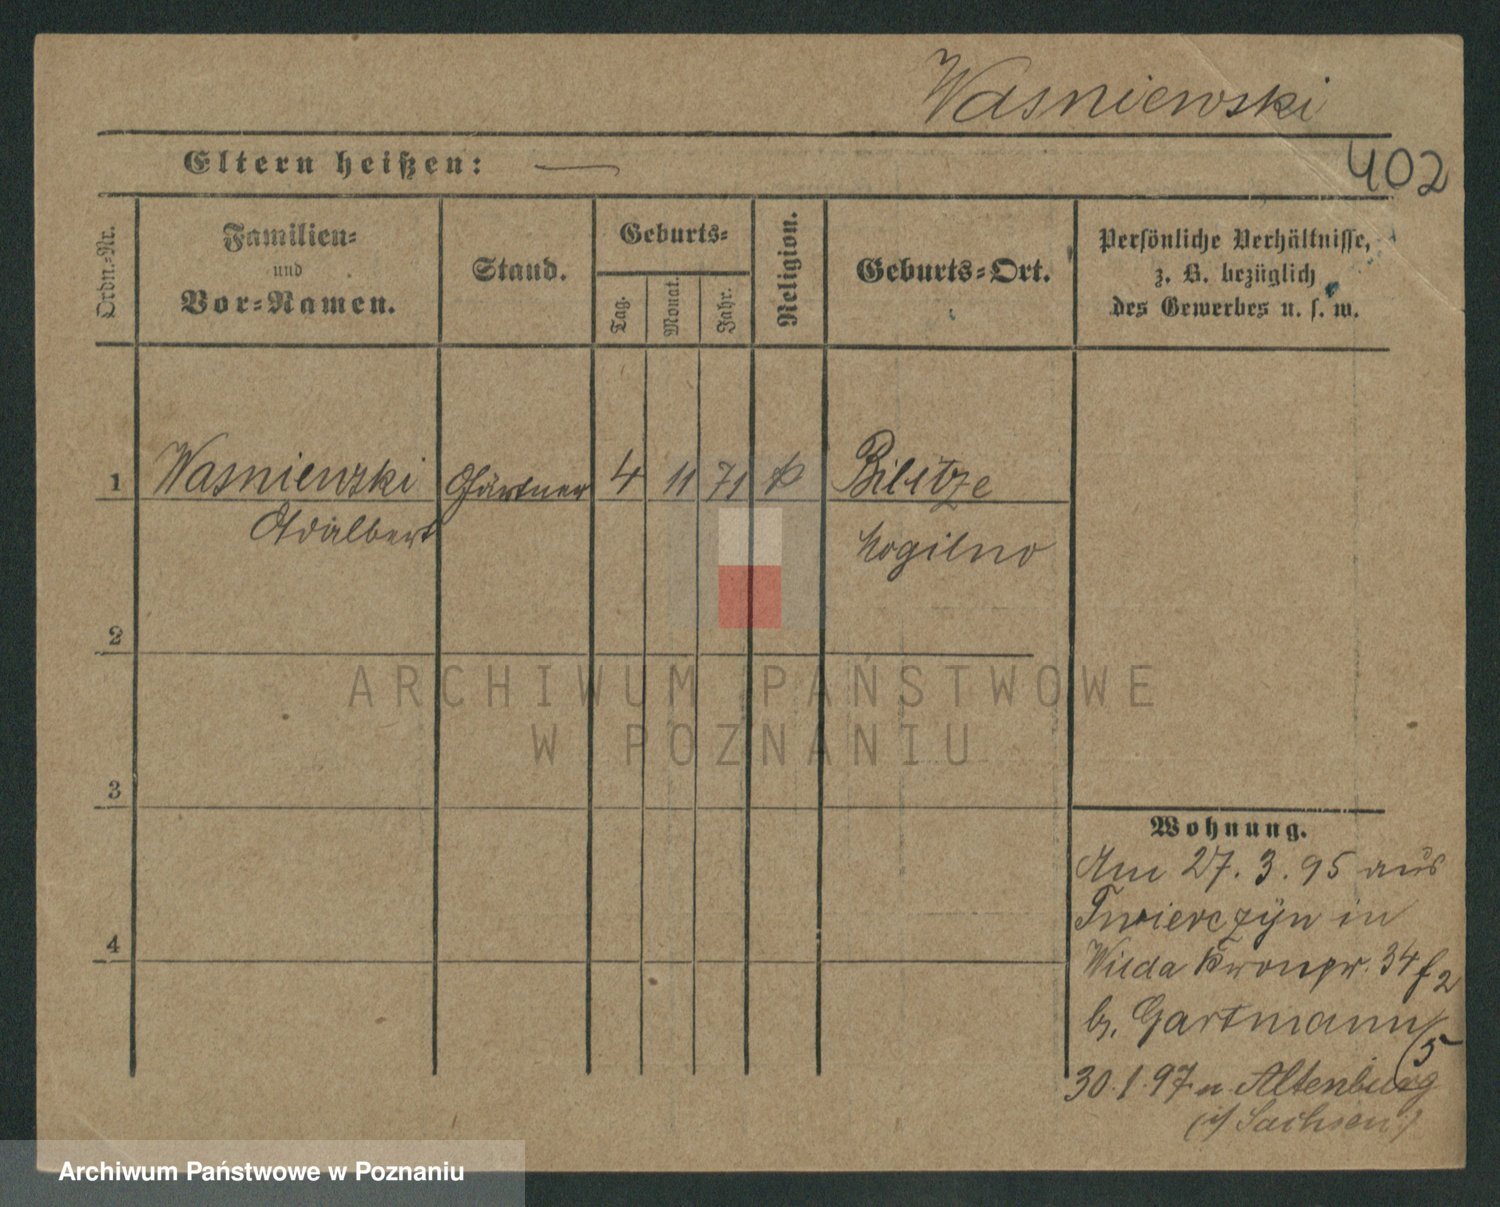 Wasniewski
402
Eltern heißen: —
Ordn.-Nr.
Familien-
und
Vor-Namen.
Stand.
Geburts-
Tag.
Monat.
Jahr.
Religion.
Geburts-Ort.
Persönliche Verhältnisse,
z. B. bezüglich
des Gewerbes u. s. w.
1 Wasniewski Gärtner 4 11 71 k Bilitze
Adalbert Mogilno
2
3
4
Wohnung.
Am 27. 3. 95 aus
Twierczyn in
Wilda Kronpr. 34 f 2
b. Gartmann
5
30. 1. 97 n Altenburg
(i/ Sachsen)
ARCHIWUM PAŃSTWOWE
W POZNANIU
Archiwum Państwowe w Poznaniu